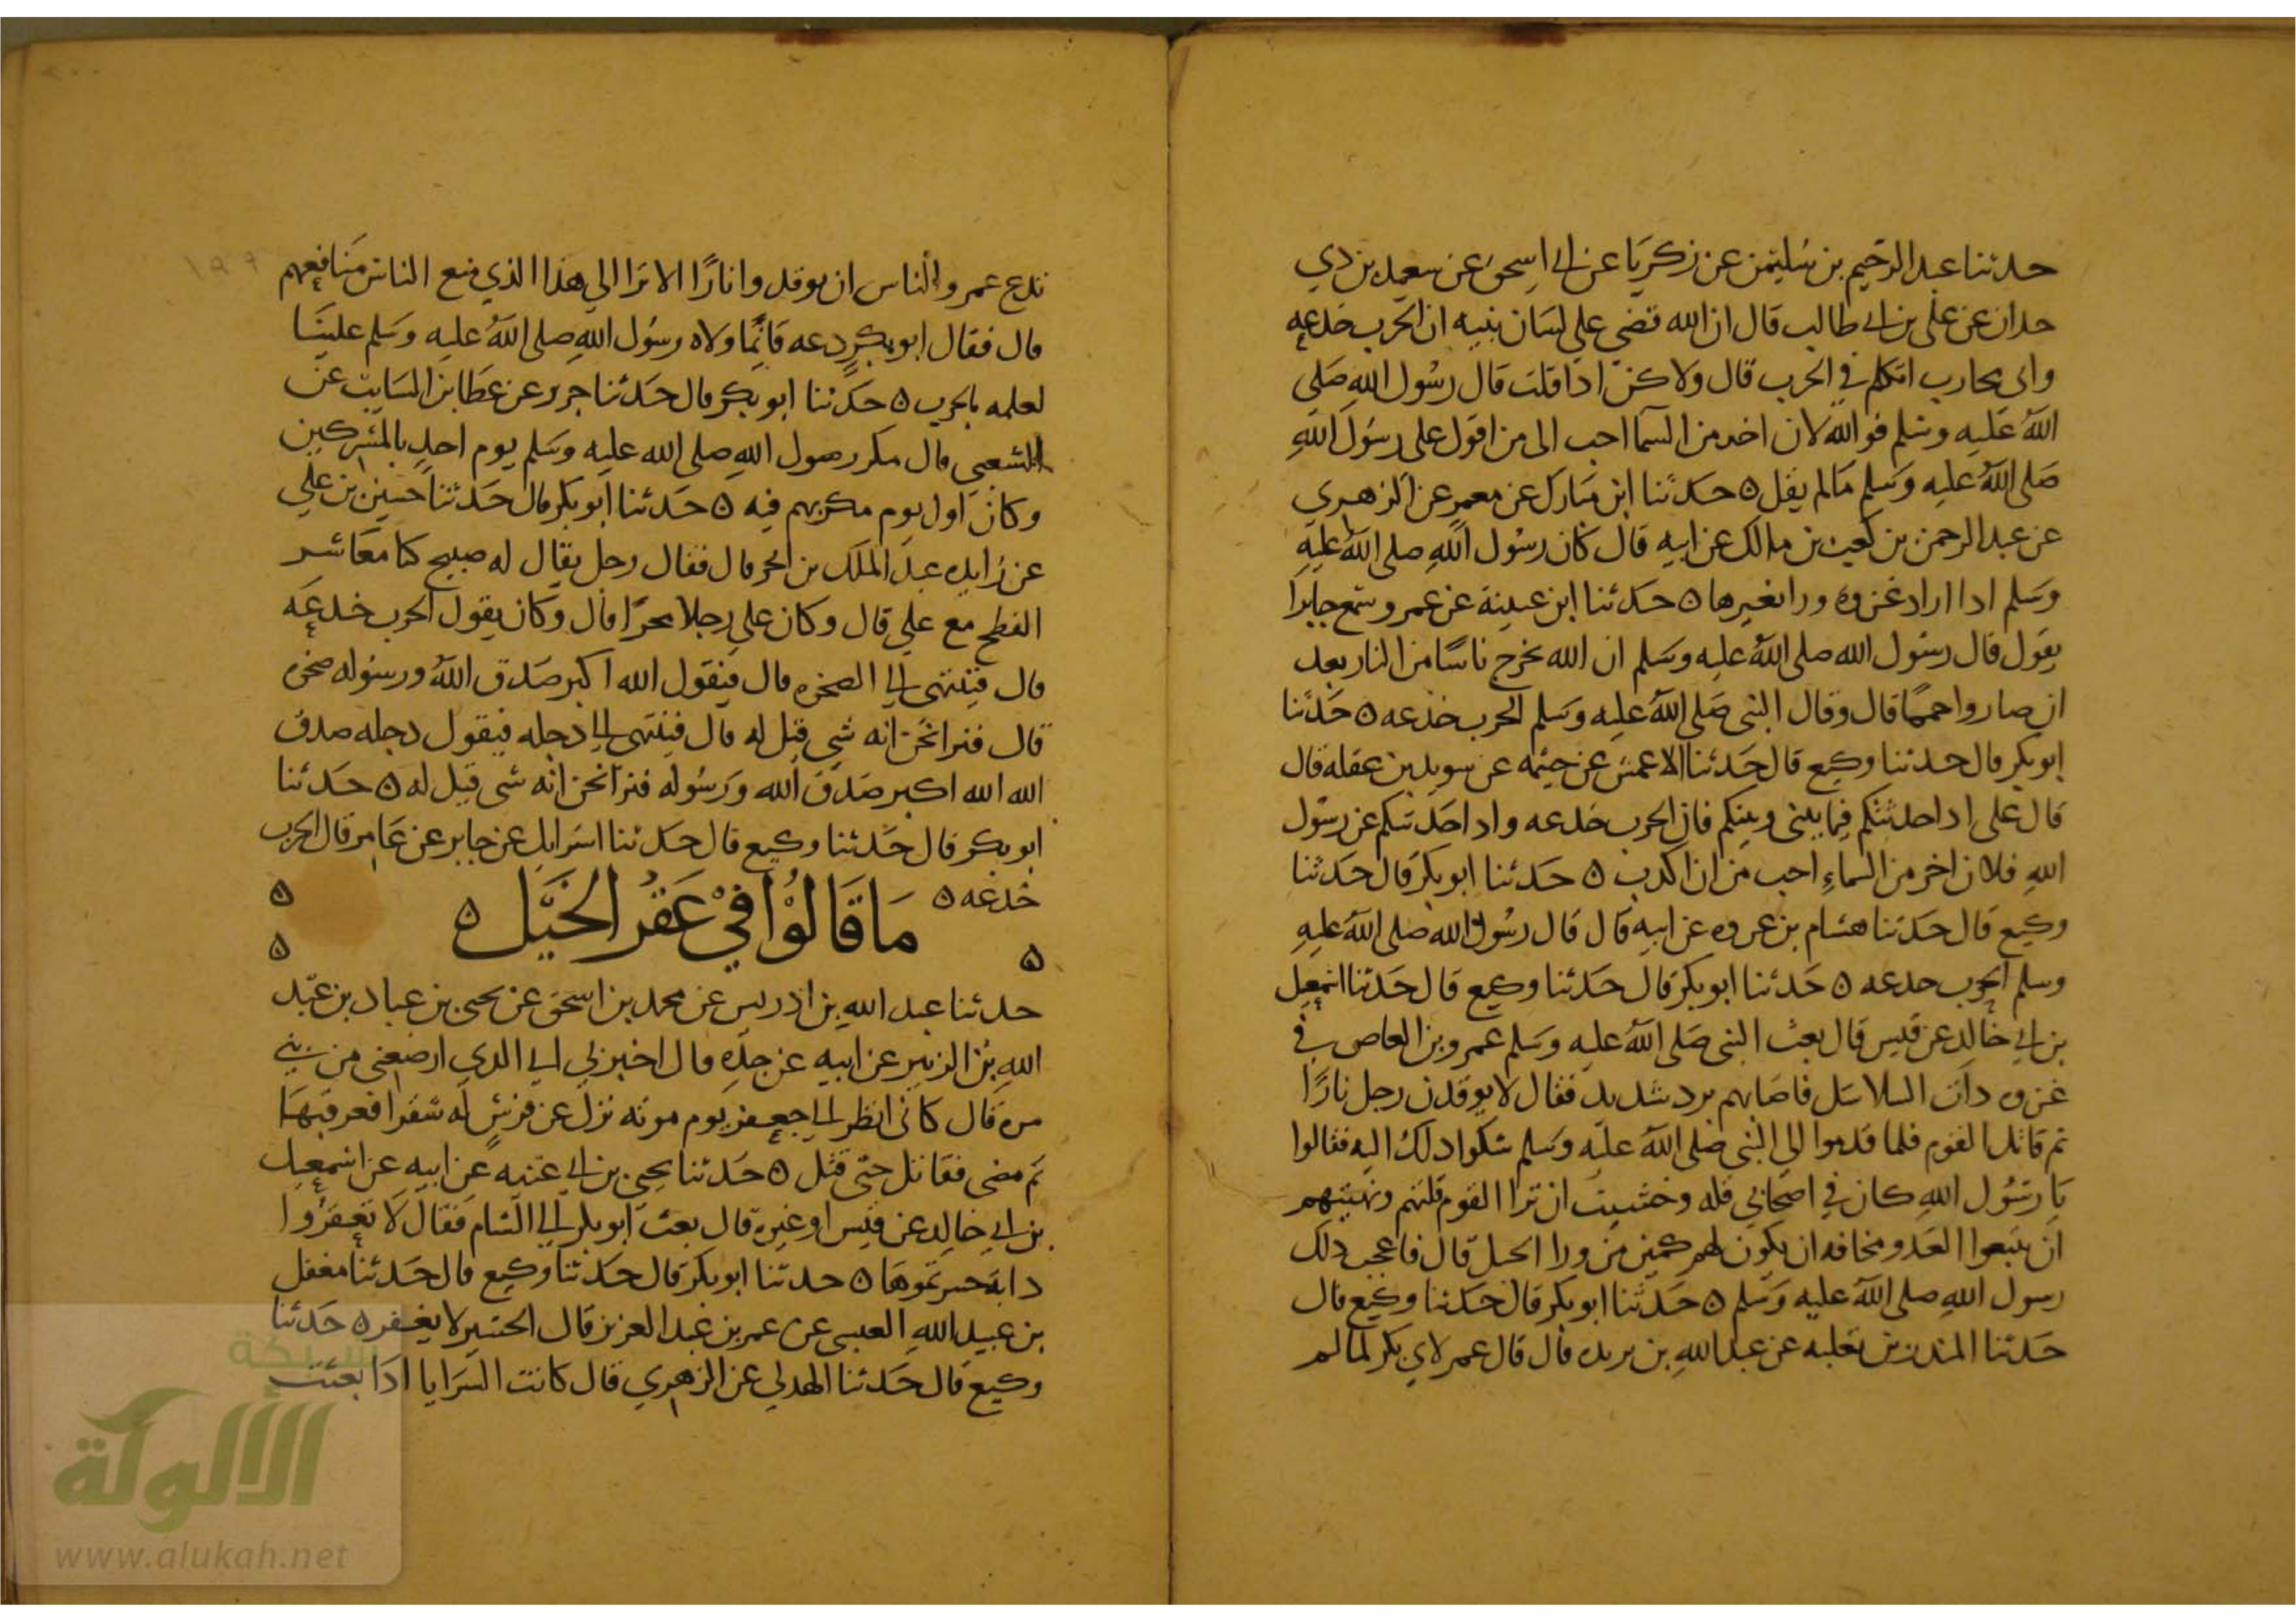 حدثنا عبد الرحيم بن سليمن عن زكريا عن ابي اسحق عن سعيد بن ذي
حدان عن علي بن ابي طالب قال ان الله قضى على لسان نبيه ان الحرب خدعه
واني محارب اتكلم في الحرب قال ولاكن اذا قلت قال رسول الله صلى
الله عليه وسلم فوالله لان اخر من السما احب الى من اقول على رسول الله
صلى الله عليه وسلم مالم يقل ه حدثنا ابن مبارك عن معمر عن الزهري
عن عبد الرحمن بن كعب بن مالك عن ابيه قال كان رسول الله صلى الله عليه
وسلم اذا اراد غزوه ورا بغيرها ه حدثنا ابن عيينة عن عمرو سمع جابرا
يقول قال رسول الله صلى الله عليه وسلم ان الله يخرج ناسا من النار بعد
ان صاروا حمما قال وقال النبي صلى الله عليه وسلم الحرب خدعه ه حدثنا
ابو بكر قال حدثنا وكيع قال حدثنا الاعمش عن خيثمه عن سويد بن غفله قال
قال على اذا حدثتكم فيما بيني وبينكم فان الحرب خدعه واذا حدثتكم عن رسول
الله فلان اخر من السماء احب من ان اكذب ه حدثنا ابو بكر قال حدثنا
وكيع قال حدثنا هشام بن عروه عن ابيه قال قال رسول الله صلى الله عليه
وسلم الحرب خدعه ه حدثنا ابو بكر قال حدثنا وكيع قال حدثنا اسمعيل
بن ابي خالد عن قيس قال بعث النبي صلى الله عليه وسلم عمرو بن العاص في
غزوه ذات السلاسل فاصابهم برد شديد فقال لا يوقدن رجل نارا
ثم قاتل القوم فلما قدموا الى النبي صلى الله عليه وسلم شكوا ذلك اليه فقالوا
يا رسول الله كان في اصحابي قله وخشيت ان ترا القوم قلتهم ونهيتهم
ان يتبعوا العدو مخافه ان يكون لهم كمين من ورا الجبل قال فاعجب ذلك
رسول الله صلى الله عليه وسلم ه حدثنا ابو بكر قال حدثنا وكيع قال
حدثنا المنذر بن ثعلبه عن عبد الله بن بريده قال قال عمر لابي بكر لما لم
ندع عمرو الناس ان يوقدوا نارا الا ترا الى هذا الذي منع الناس منافعهم
قال فقال ابو بكر دعه فانما ولاه رسول الله صلى الله عليه وسلم علينا
لعلمه بالحرب ه حدثنا ابو بكر قال حدثنا جرير عن عطا بن السايب عن
الشعبي قال مكر رسول الله صلى الله عليه وسلم يوم احد بالمشركين
وكان اول يوم مكر بهم فيه ه حدثنا ابو بكر قال حدثنا حسين بن علي
عن زايده عبد الملك بن الحر قال فقال رجل يقال له صبيح كنا معاشر
الفطح مع علي قال وكان علي رجلا محرا قال وكان يقول الحرب خدعه
قال فينتهي الى الصخره قال فيقول الله اكبر صدق الله ورسوله صخره
قال فنرا نحن انه شي قيل له قال فينتهي الى دجله فيقول دجله صدق
الله الله اكبر صدق الله ورسوله فنرا نحن انه شي قيل له ه حدثنا
ابو بكر قال حدثنا وكيع قال حدثنا اسرايل عن جابر عن عامر قال الحرب
خدعه ه
ما قالوا في عقر الخيل ه
حدثنا عبد الله بن ادريس عن محمد بن اسحق عن يحيى بن عباد بن عبد
الله بن الزبير عن ابيه عن جده قال اخبرني ابي الذي ارضعني من بني
مرة قال كاني انظر الى جعفر يوم موته نزل عن فرس له شقرا فعرقبها
ثم مضى فقاتل حتى قتل ه حدثنا يحيى بن ابي غنيه عن ابيه عن اسمعيل
بن ابي خالد عن قيس او غيره قال بعث ابو بكر الى الشام فقال لا تعقروا
دابة حسرتموها ه حدثنا ابو بكر قال حدثنا وكيع قال حدثنا مغفل
بن عبيد الله العبسي عن عمر بن عبد العزيز قال الحسير لا يعقر ه حدثنا
وكيع قال حدثنا الهدلي عن الزهري قال كانت السرايا اذا بعثت
شبكة
الألوكة
www.alukah.net